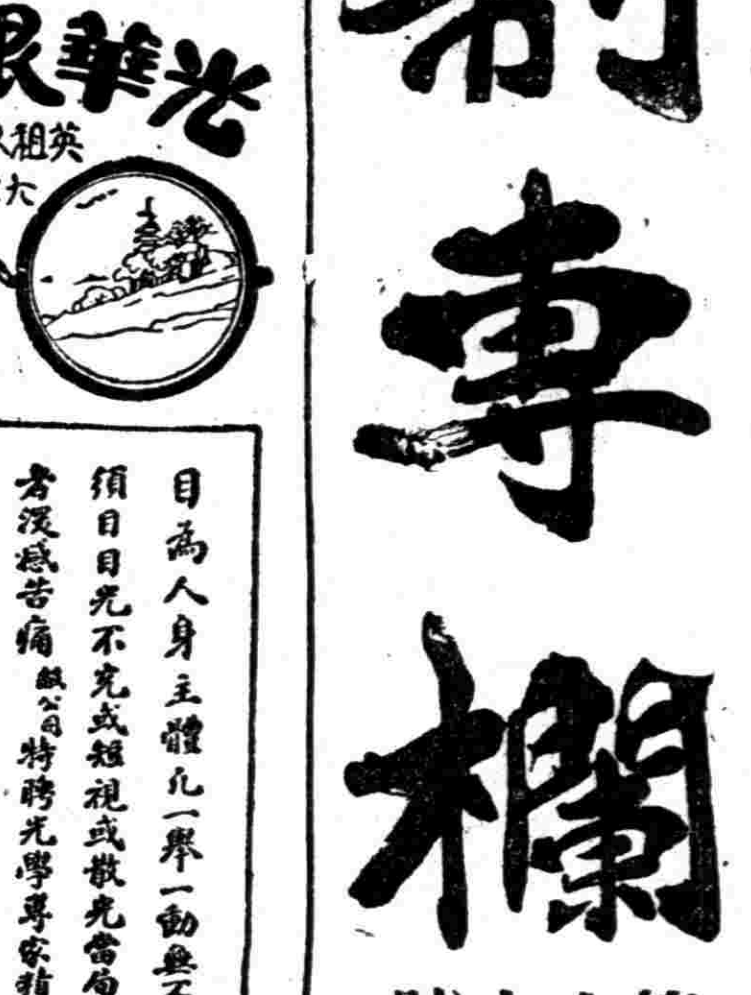 制專欄
光華眼
英租
大
目為人身主體凡一舉一動無不
須目目光不充或短視或散光當句
者深感告痛敝公司特聘光學專家精